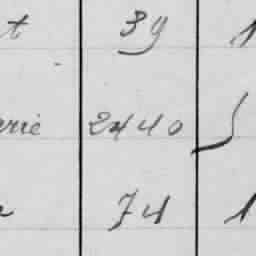 t 39 1
arrié 2440
74 1